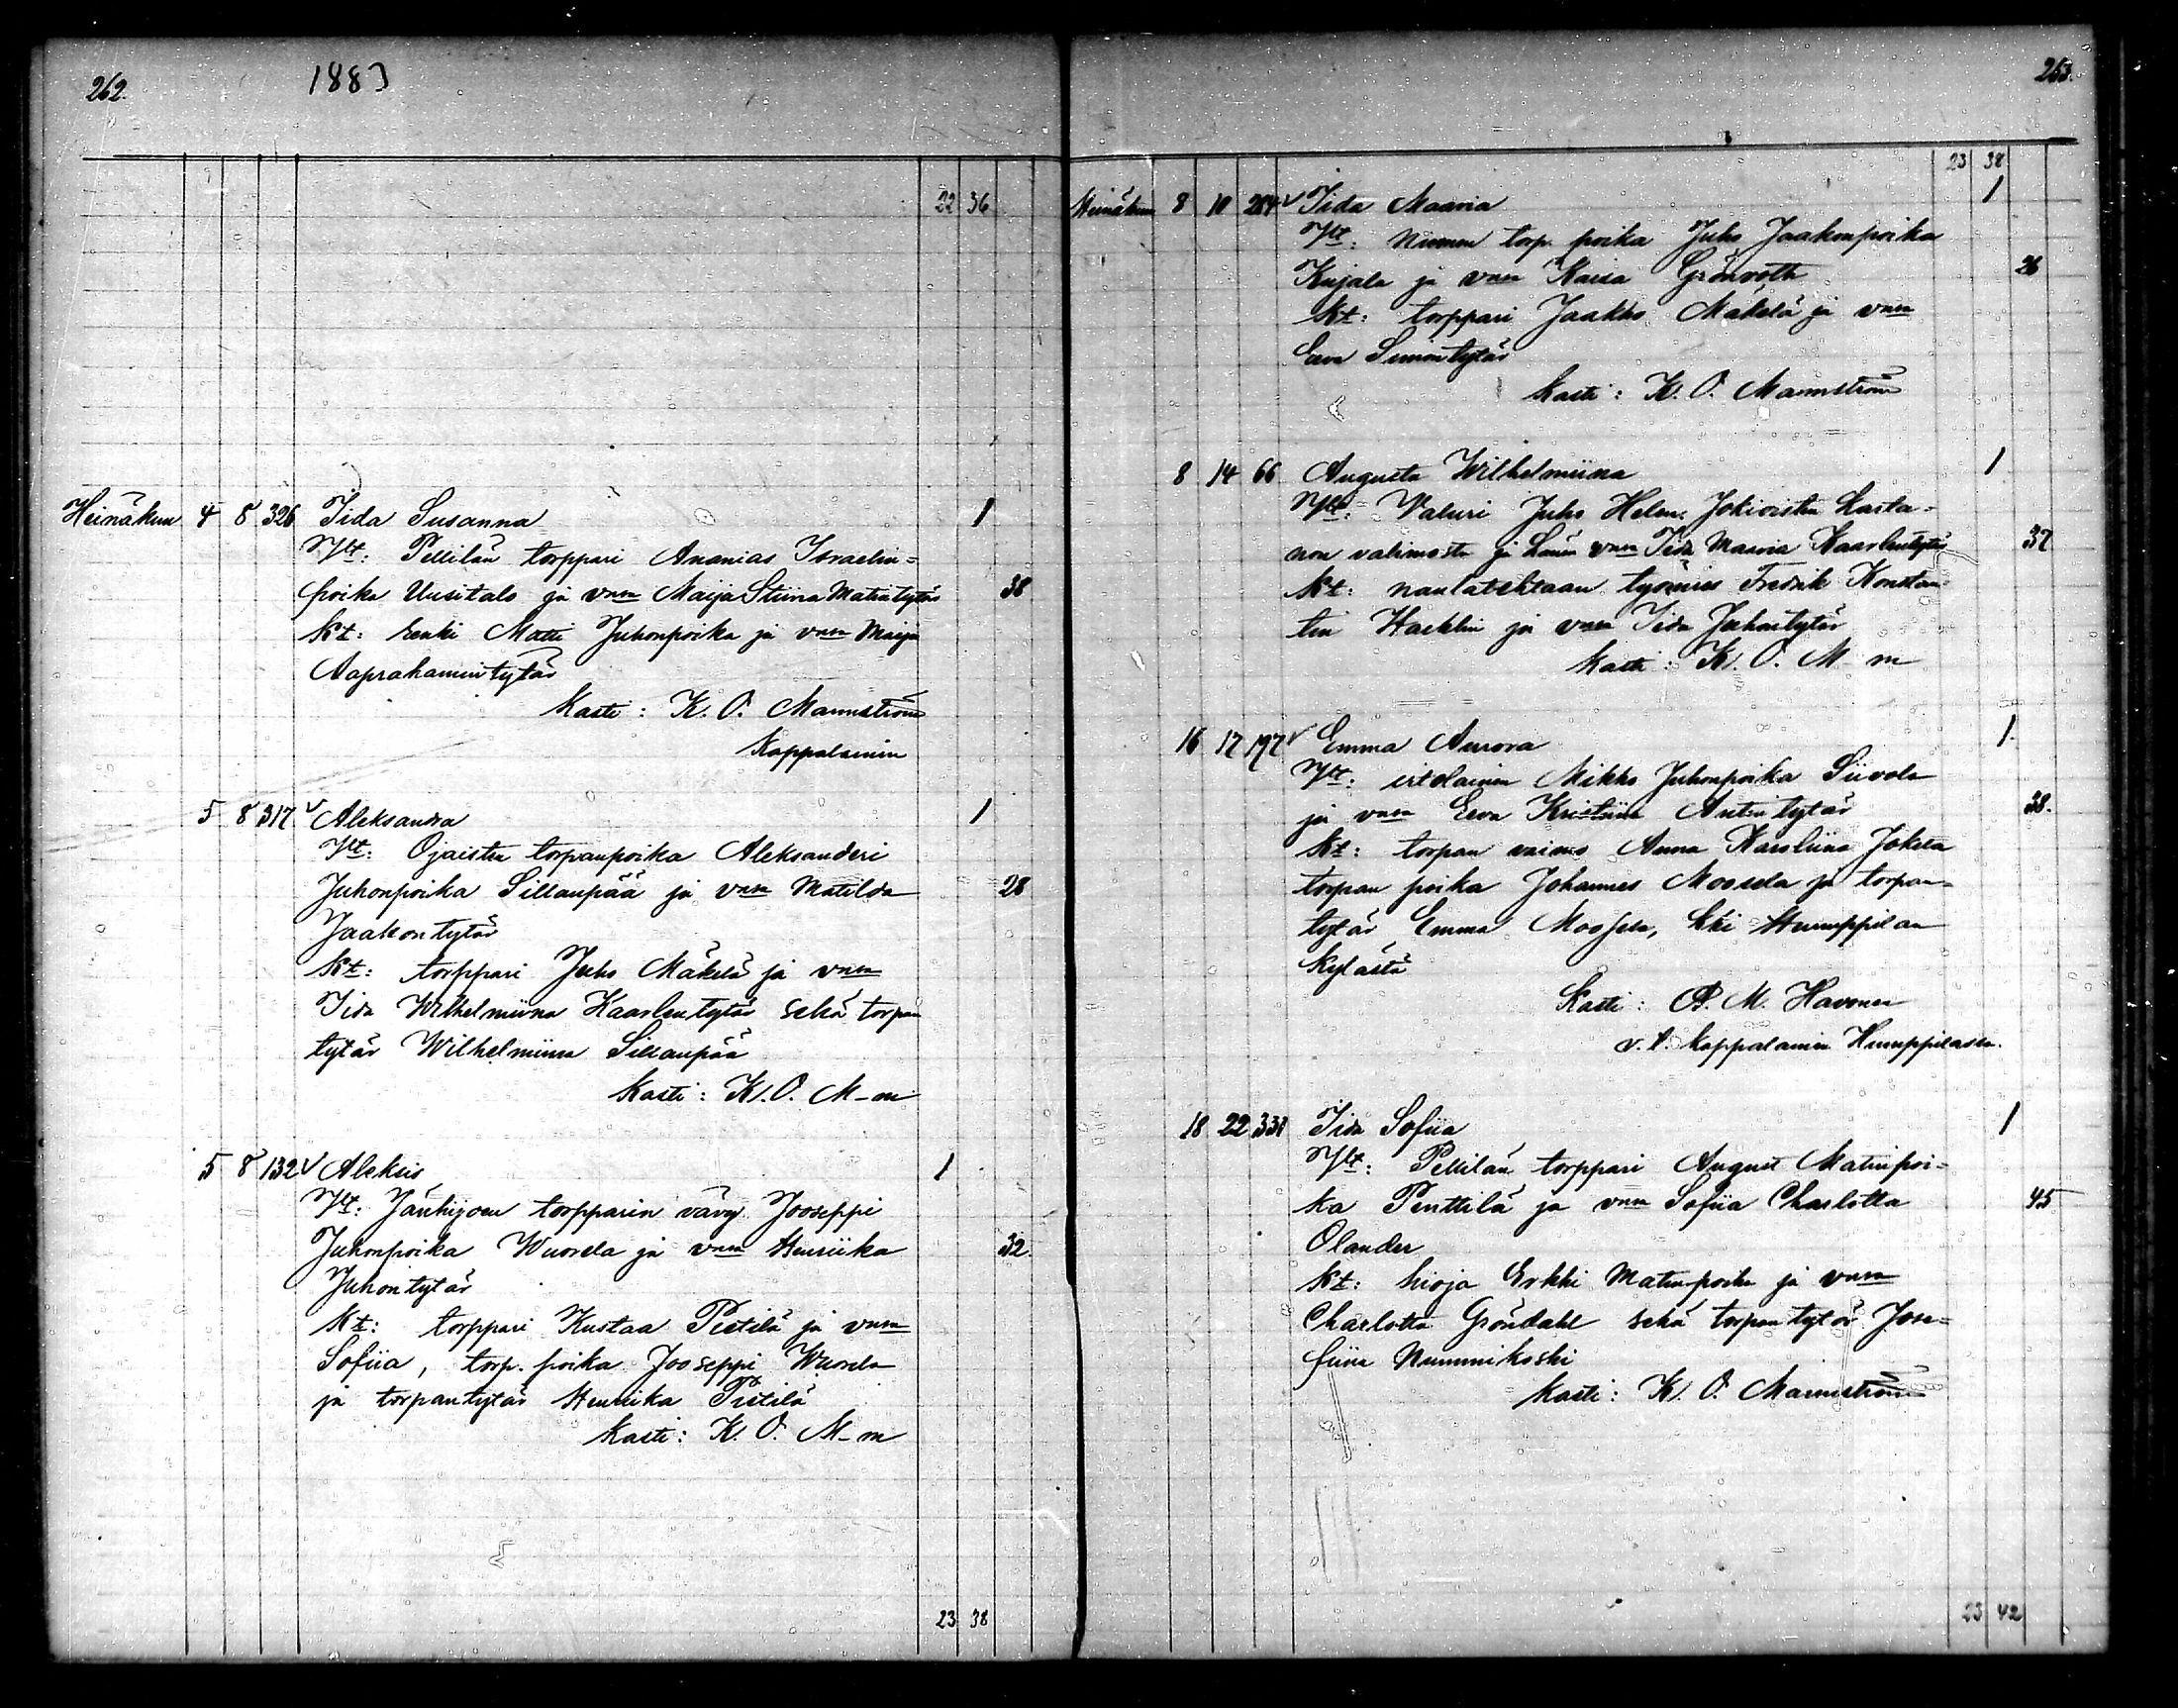 262.
1883
22 36
Heinäkuu 4 8 326 Iida Susanna 1
Vht: Pellilän torppari Ananias Israelin=
poika Uusitalo ja vmsa Maija Stiina Matintytär 38
Kt: renki Matti Juhonpoika ja vmsa Maija
Aaprahamintytär
Kasti: K. O. Mannström
Kappalainen
5 8 317 √ Aleksandra 1
Vht: Ojaisten torpanpoika Aleksanderi
Juhonpoika Sillanpää ja vmsa Matilda 28
Jaakontytär
Kt: torppari Juho Mäkelä ja vmsa
Iida Wilhelmiina Kaarlentytär sekä torpan
tytär Wilhelmiina Sillanpää
Kasti: K. O. M-m
5 8 132 √ Aleksis 1
Vht: Jänhijoen torpparin vävy Jooseppi
Juhonpoika Wuorela ja vmsa Henriika 32
Juhontytär
Kt: torppari Kustaa Pietilä ja vmsa
Sofiia, torp. poika Jooseppi Wuorela
ja torpantytär Henriika Pietilä
Kasti: K. O. M-m
23 38
263.
23 38
Heinäkuu 8 10 284 √ Iida Maaria 1
Vht: Nummen torp. poika Juho Jaakonpoika
Kujala ja vmsa Kaisa Grönroth 26
Kt: torppari Jaakko Mäkelä ja vmsa
Eeva Simontytär
Kasti: K. O. Mannström
8 14 66 Augusta Wilhelmiina 1
Vht: Valuri Juho Helen. Jokioisten Karta-
non valimosta ja vmsa Iida Maaria Kaarlentytär 37
Kt: naulatehtaan työmies Fredrik Konstan-
tin Hacklin ja vmsa Iida Juhontytär
Kasti: K. O. M-m
16 17 197 √ Emma Aurora 1
Vht: irtolainen Mikko Juhonpoika Siivola
ja vmsa Eeva Kristiina Antintytär 38.
Kt: torpan vaimo Anna Karoliina Jokela
torpan poika Johannes Moosela ja torpan-
tytär Emma Moosela, kki Humppilan
kylästä
Kasti: A. M. Havonen
v. t. kappalainen Humppilassa.
18 22 331 Iida Sofiia 1
Vht: Pellilän torppari August Matinpoi-
ka Penttilä ja vmsa Sofiia Charlotta 45
Olander
Kt: hioja Erkki Matinpoika ja vmsa
Charlotta Gröndahl sekä torpantytär Jose-
fiina Nummikoski
Kasti: K. O. Mannström
23 42